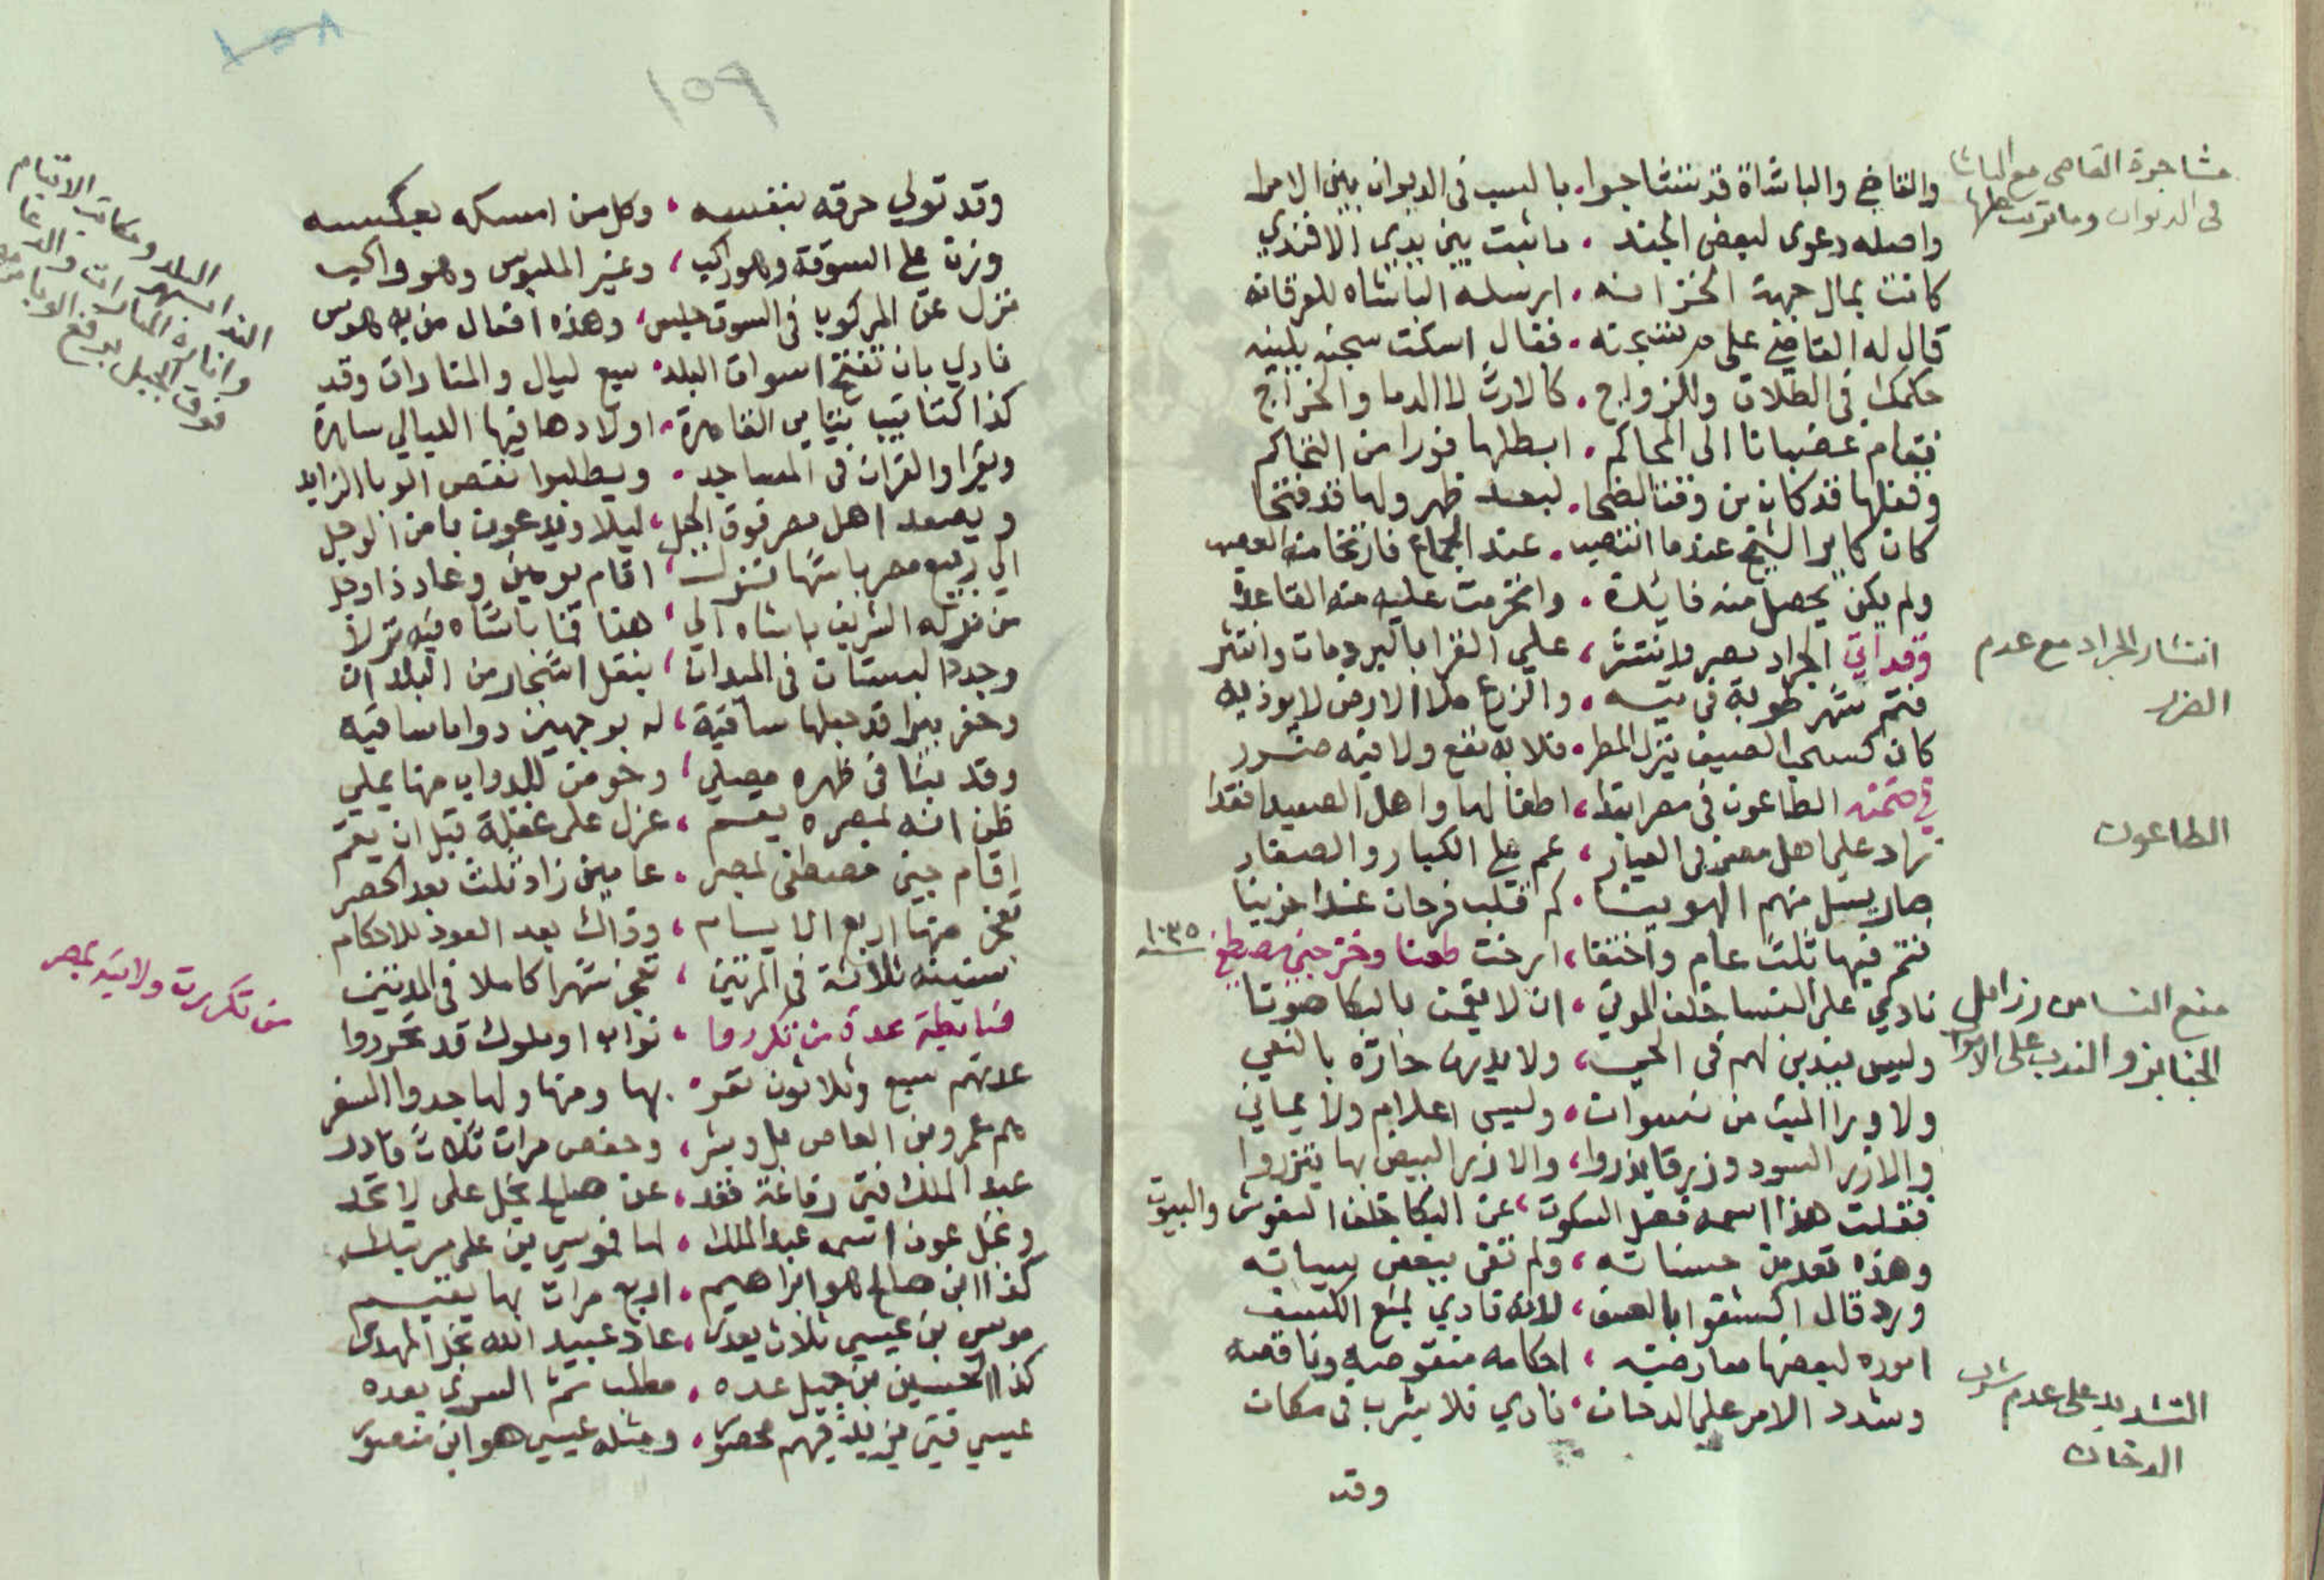 مشاجرة القاضى مع الباشا
فى الديوان وما ترتب عليها
والقاضي والباشاة قد تشاجروا، بالسب فى الديوان بين الامرا
واصله دعوى لبعض الجند، ما ثبت بين يدى الافندي
كانت بمال جهة الخزانه، ارسله الباشاه للعرقانه
قال له القاضي على، فقال اسكت سجنه يلبينه
حكمك فى الطلاق والزواج، كالارث لا الدما والخراج
فقام غضبانا الى المحاكم، ابطلها فورا من التحاكم
وفعلها قد كان من وقت الضحا، لبعد ظهر ولها قد فتحا
كان كاير الشيخ عندما انتصب، عند الجماع فارتخا منه العصب
ولم يكن يحصل منه فائدة، وانخرمت عليه منه القاعدة
وقد اتي الجراد بمصر وانتشر، علي القرا بالبر ومات وانتثر
انتشار الجراد مع عدم
الضرر
فتم شهر طوبة فى بيته، والزرع ملا الارض لا يوذيه
كان كسحب الصيف ينزل المطر، فلا به نفع ولا فيه ضرر
في ضمنه الطاعون فى مصر ابتدا، اطفالها واهل الصعيد افقدا
الطاعون
زاد على اهل مصر فى العيار، عم على الكبار والصغار
صار يسل منهم الهوينا، كم قلب فرحان غدا حزينا
فتم فيها ثلث عام واختفا، ارخت طعنا وختر جني مصطفى
١٠٣٥
سنه
منع النسا من
الجنايز والندب على الاموات
نادي على النسا خلف الموتى، ان لا يقمن بالبكا صوتا
وليس يندبن لهم فى الحي، ولا يدرن حارة بالنعي
ولا ورا الميت من نسوان، وليس اعلام ولا عميان
والازر السود وزرقا يذروا، والازر البيض بها يتزروا
فقلت هذا اسمه فضل السكوت، عن البكا خلف النعوش والبيوت
وهذه تعد من حسناته، ولم تفى ببعض سيياته
ورد قال اكشفوا بالعنف، لانه نادي بمنع الكشف
اموره لبعضها معارضه، احكامه منقوضه وناقضه
التشديد على عدم شرب
الدخان
وشدد الامر على الدخان، نادي فلا يشرب فى مكان
وقد
١٥٩
وقد تولي حرقه بنفسه، وكل من امسكه بعكسه
وزن على السوقة وهو راكب، وغير الملبوس وهو واكب
نزل عن المركوب فى السوق جلس، وهذه افعال من به هوس
النداء البلد ومكاتب الايتام
وانارة المنارات والدعا
فوق الجبل برفع الوبا
نادي بان تفتح اسواق البلد، سبع ليال والمنارات وقد
كذا كتاتيب بتيامى القاهرة، اولادها فيها الليالي ساهرة
ويقراوا القران فى المساجد، ويطلبوا نقص الوبا الزايد
ويصعد اهل مصر فوق الجبل، ليلا ويدعون بامن الوجل
الي ربيع مصر باشتها نزل، اقام يومين وعاد ذا وجل
من نزله الشريف باشاه الي، هنا فتا باشاه فيه نزلا
وجدد البستان فى الميدان، بنقل اشجار من البلدان
وحفر بيرا قد جعلها ساقية، له بوجهين دواما ساقيه
وقد بنا فى ظهره مصلي، وحو من للدواب منها يملي
ظن انه لمصره يقسم، عزل على غفلة قبل ان يقم
اقام جني مصطفى لمصر، عامين زاد ثلث بعد الحصر
تعجز منها اربع الايام، وذاك بعد العود للاحكام
سنينه ثلاثة فى المرتين، تعجز شهرا كاملا فى المدتين
من تكررت ولايته بمصر
ضابطة عدة من تكرروا، نواب او ملوك قد تحرروا
عدتهم سبع وثلاثون نفر، بها ومنها ولها جدوا السفر
هم عمرو بن العاص بل وبشر، وحفص مرات ثلاث قادر
عبد الملك فتى رفاعة فقد، عن صالح نجل على لا تحد
ونجل عون اسمه عبد الملك، لها موسى بن على من يتك
كذا ابن صالح هو ابراهيم، اربع مرات بها يقيم
موسى بن عيسي ثلاث يعدى، عاد عبيد الله نجل المهدى
كذا الحسين بن جميل عده، مطلب ثم السرى بعده
عيسي فتى يزيد فيهم محصور، ومثله عيسى هو ابن منصور